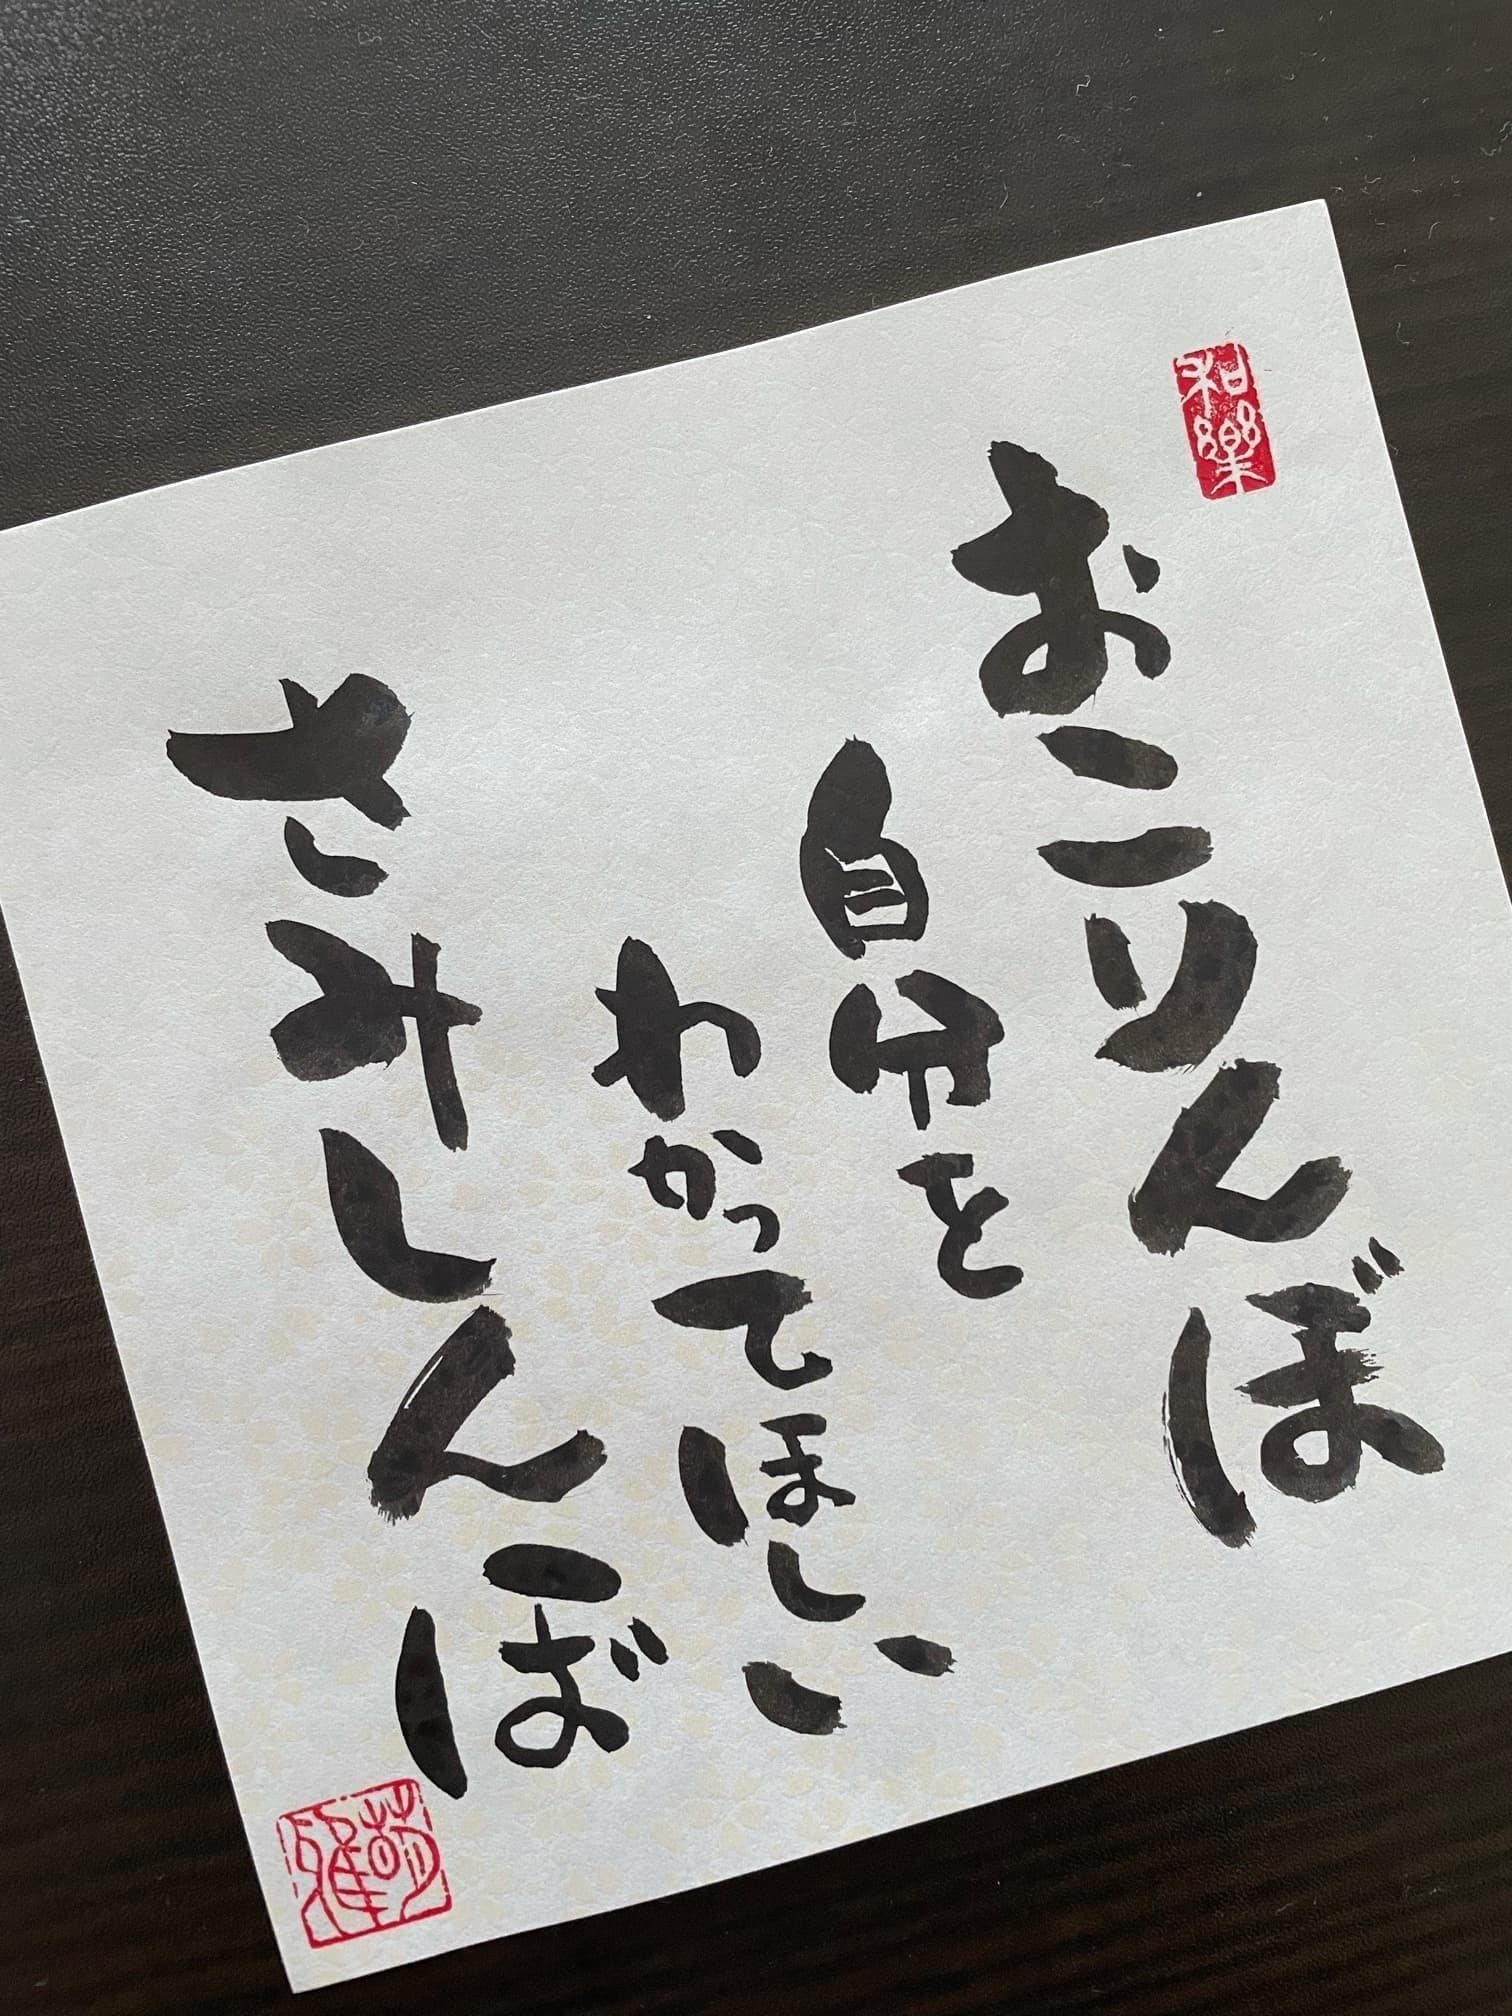 和樂
おこりんぼ
自分を
わかってほしい
さみしんぼ